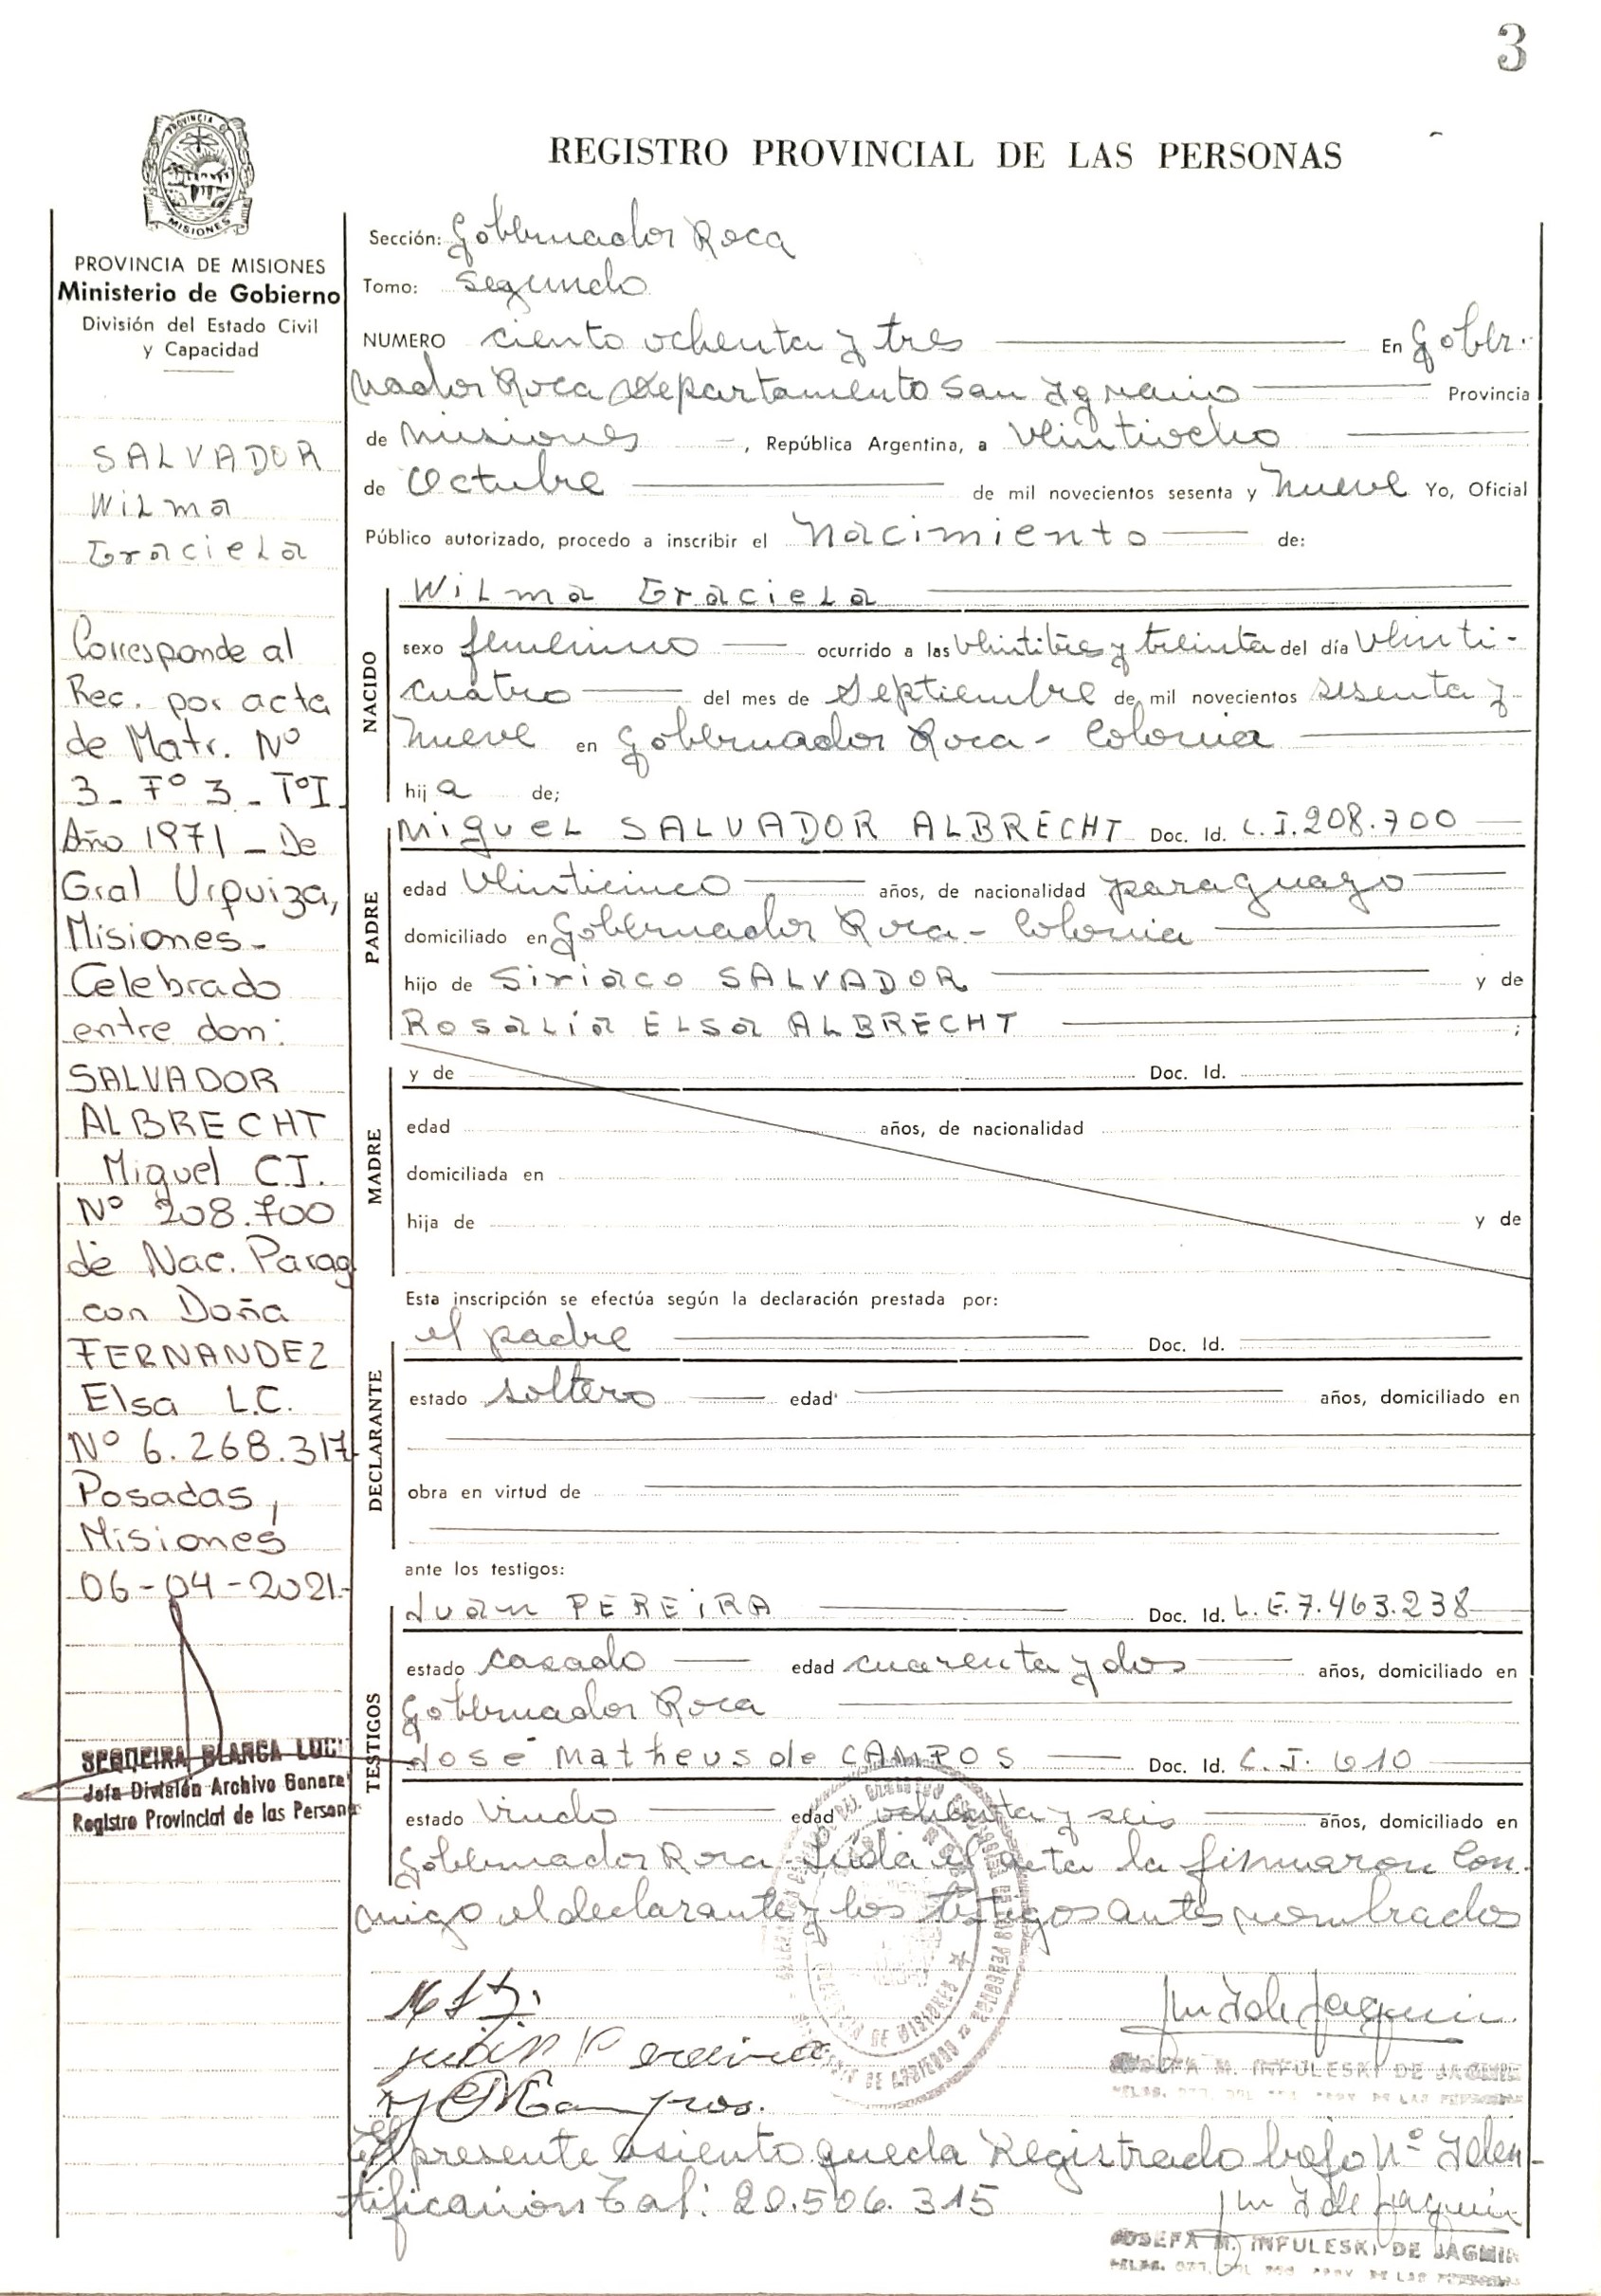 3
PROVINCIA
MISIONES
REGISTRO PROVINCIAL DE LAS PERSONAS
PROVINCIA DE MISIONES
Ministerio de Gobierno
División del Estado Civil
y Capacidad
SALVADOR
Wilma
Graciela
Corresponde al
Rec. por acta
de Matr. Nº
3 - Fº 3 - TºI
Año 1971 - De
Gral Urquiza,
Misiones -
Celebrado
entre don:
SALVADOR
ALBRECHT
Miguel C.I.
Nº 208.700
de Nac. Parag
con Doña
FERNANDEZ
Elsa L.C.
Nº 6.268.317
Posadas,
Misiones
06-04-2021-
SEQUEIRA BLANCA LUCI
Jefa División Archivo General
Registro Provincial de las Persona
Sección: Gobernador Roca
Tomo: Segundo
NUMERO ciento ochenta y tres En Gober-
nador Roca Departamento San Ignacio Provincia
de Misiones, República Argentina, a veintiocho
de Octubre de mil novecientos sesenta y nueve Yo, Oficial
Público autorizado, procedo a inscribir el nacimiento de:
NACIDO
Wilma Graciela
sexo femenino ocurrido a las veintitres y treinta del día veinti-
cuatro del mes de Septiembre de mil novecientos sesenta y
nueve en Gobernador Roca - Colonia
hija de;
PADRE
Miguel SALVADOR ALBRECHT Doc. Id. C.I. 208.700
edad veinticinco años, de nacionalidad paraguayo
domiciliado en Gobernador Roca - Colonia
hijo de Siriaco SALVADOR y de
Rosalía Elsa ALBRECHT ;
MADRE
y de Doc. Id.
edad años, de nacionalidad
domiciliada en
hija de y de
Esta inscripción se efectúa según la declaración prestada por:
DECLARANTE
el padre Doc. Id.
estado soltero edad años, domiciliado en
obra en virtud de
ante los testigos:
TESTIGOS
Juan PEREIRA Doc. Id. L.E. 7.463.238
estado casado edad cuarenta y dos años, domiciliado en
Gobernador Roca
José Matheus de CAMPOS Doc. Id. C.I. 610
estado viudo edad ochenta y seis años, domiciliado en
Gobernador Roca - Leída el acta la firmaron con-
migo el declarante y los testigos antes nombrados
JOSEFA M. INFULESKI DE JAGMIN
El presente asiento queda registrado bajo Nº Iden-
tificación Tal: 20.506.315
JOSEFA M. INFULESKI DE JAGMIN